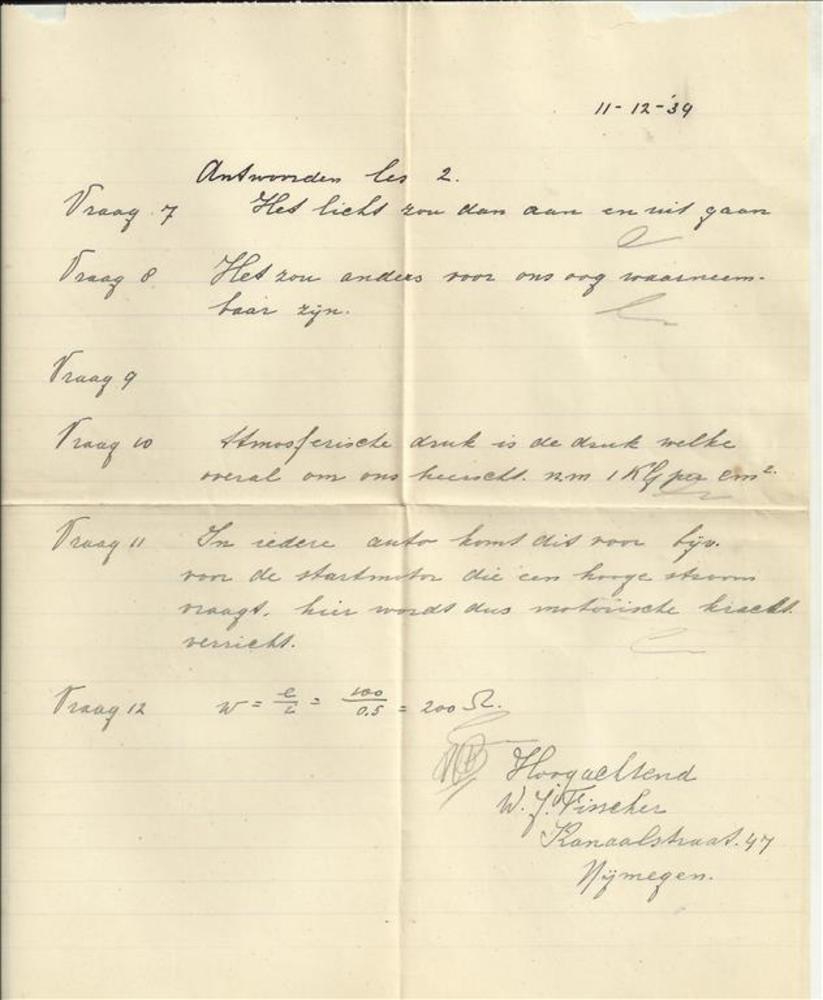 11-12-'39
Antwoorden les 2.
Vraag 7 Het licht zou dan aan en uit gaan
Vraag 8 Het zou anders voor ons oog waarneem-
baar zijn.
Vraag 9
Vraag 10 Atmosferische druk is de druk welke
overal om ons heerscht. n.m 1 KG per cm².
Vraag 11 In iedere auto komt dit voor bijv.
voor de startmotor die een hooge stroom
vraagt. hier wordt dus motorische kracht
verricht.
Vraag 12 W = e/i = 100/0.5 = 200 Ω.
Hoogachtend
W. J. Visscher
Kanaalstraat. 47
Nijmegen.